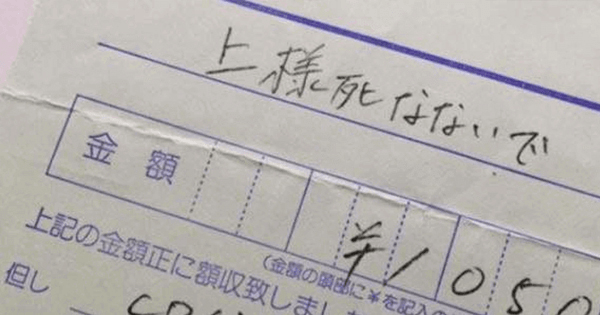 上様死なないで
金額 ¥1050
(金額の頭部に¥を記入の
上記の金額正に額収致しました
但し